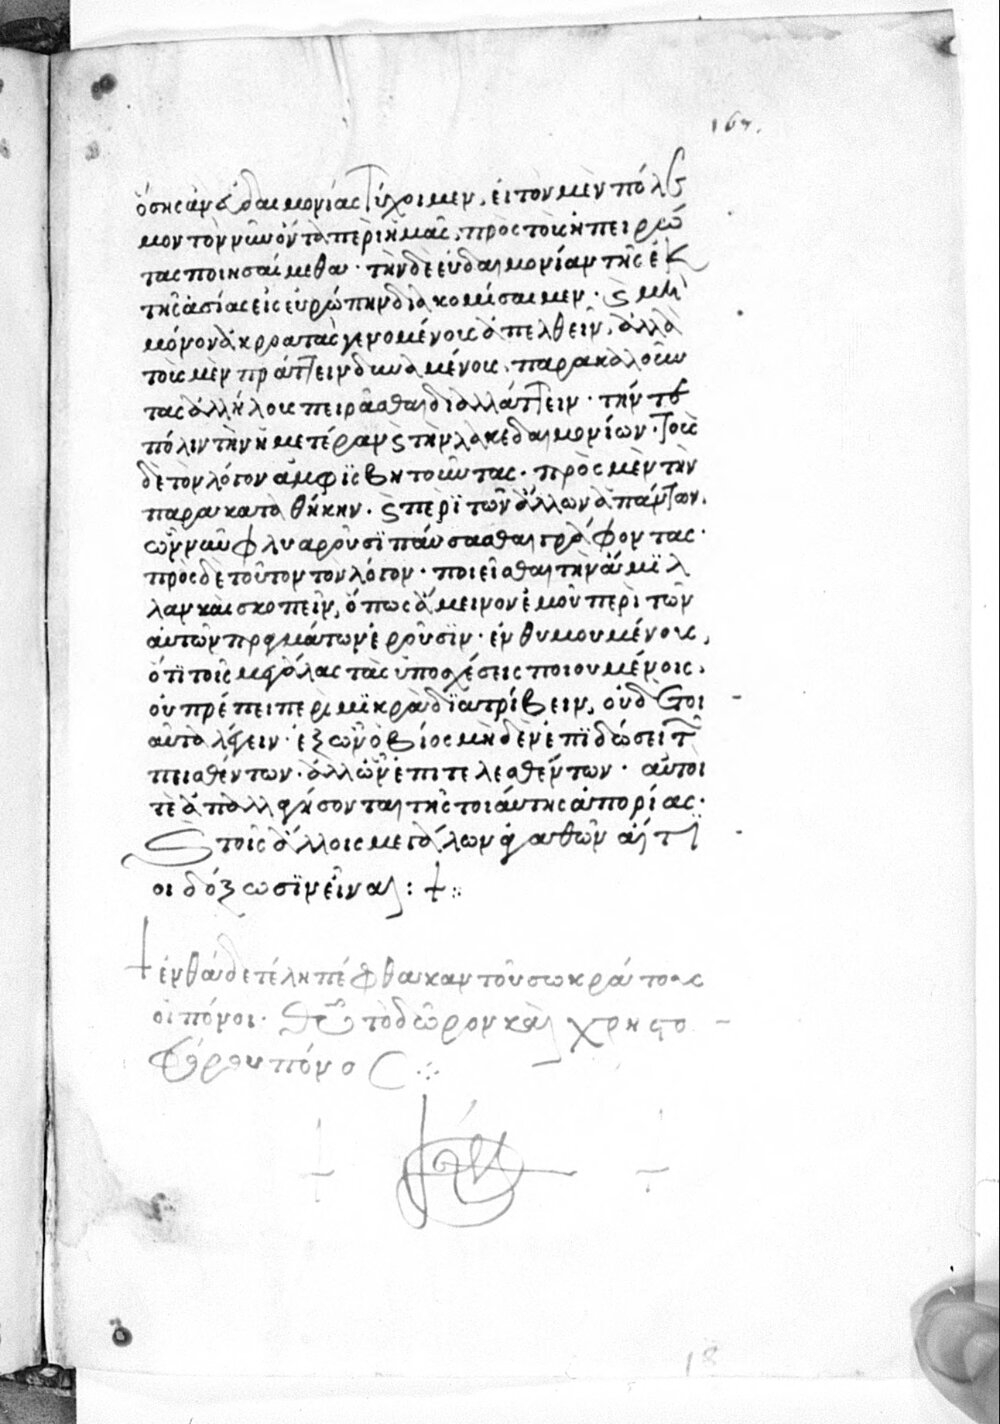 167.
ὅσης ἂν εὐδαιμονίας τύχοιμεν, εἰ τὸν μὲν πόλε
μον τὸν νῦν ὄντα περὶ ἡμᾶς, πρὸς τοὺς ἠπειρώ
τας ποιησαίμεθα· τὴν δὲ εὐδαιμονίαν τὴν ἐκ
τῆς ἀσίας εἰς εὐρώπην διακομίσαιμεν· καὶ μὴ
μόνον ἀκροατὰς γενομένους ἀπελθεῖν, ἀλλὰ
τοὺς μὲν πράττειν δυναμένους, παρακαλοῦν
τας ἀλλήλους πειρᾶσθαι διαλλάττειν· τήν τε
πόλιν τὴν ἡμετέραν καὶ τὴν λακεδαιμονίων· τοὺς
δὲ τὸν λόγον ἀμφϊσβητοῦντας· πρὸς μὲν τὴν
παρακαταθήκην· καὶ περὶ τῶν ἄλλων ἁπάντων,
ὧν νῦν φλυαροῦσϊ παύσασθαι γράφοντας·
πρὸς δὲ τοῦτον τὸν λόγον· ποιεῖσθαι τὴν ἅμϊλ
λαν καὶ σκοπεῖν, ὅπως ἄμεινον ἐμοῦ περὶ τῶν
αὐτῶν πραγμάτων ἐροῦσϊν· ἐνθυμουμένους,
ὅτϊ τοῖς μεγάλας τὰς ὑποσχέσεις ποιουμένοις,
οὐ πρέπει περὶ μϊκρὰ δϊατρίβειν, οὐδὲ τοι
αῦτα λέγειν· ἐξ ὧν ὁ βίος μηδὲν ἐπϊδώσει τῶν
πεισθέντων· ἀλλ' ὧν ἐπιτελεσθέντων· αὐτοί
τε ἀπαλλαγήσονται τῆς τοιαύτης ἀπορίας·
καὶ τοῖς ἄλλοις μεγάλων ἀγαθῶν αἴτϊ
οι δόξωσϊν εἶναι: +
+ ἐνθάδε τέλη πέφθακαν τοῦ σωκράτους
οἱ πόνοι· θεοῦ τὸ δῶρον καὶ χρηστο
φόρου πόνος
18